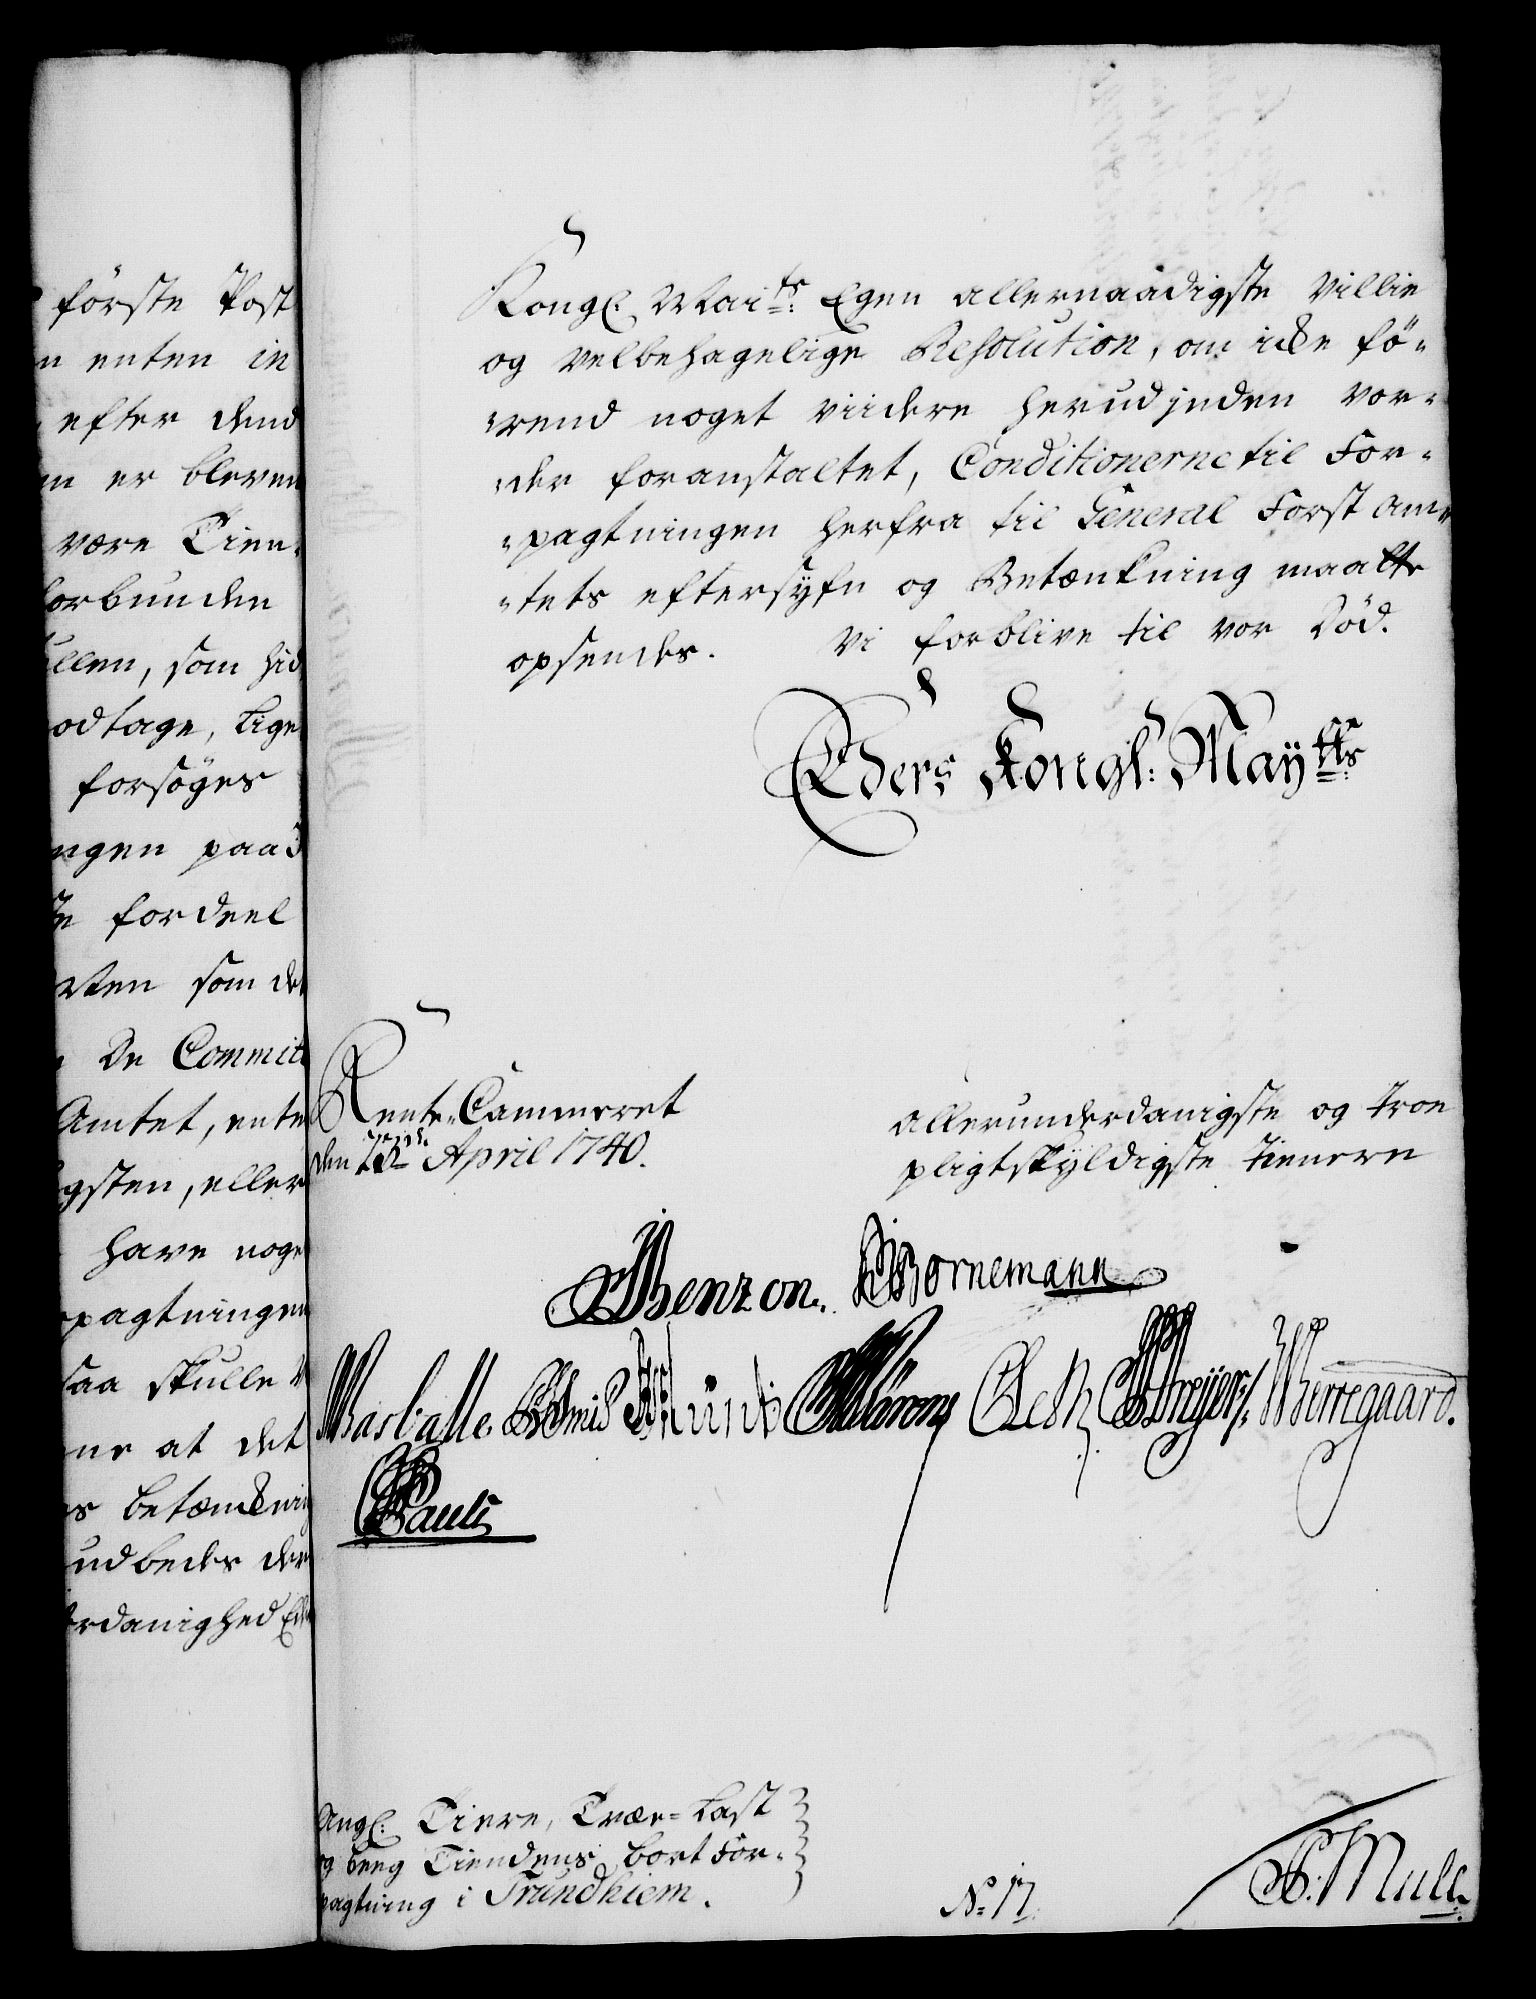 første Post
n enten in
efter dend
er bleven
være Tien-
forbunden
ullen, som hid
odtage, lige
forsøges
ngen paa 3
fordeel
som de
De Commit
Amtet, ente
gsten, eller
have noge
pagtningen
saa skulle
ne at det
s betænkning
udbedes der
erdanighed Ed
Kongl. Maits: Egen allernaadigste Villie
og velbehagelige Resolution, om icke fø-
-rend noget viidere herudjnden vor-
-der foranstaltet, Conditionerne til For-
-pagtningen herfra til General Forst am-
-tets eftersyfn og Betænkning maatte
opsendes. Vi forblive til vor Död.
Eders Kongl: Maytts:
Rente-Cammeret
den April 1740.
allerunderdanigste og troe
pligtskyldigste tienere
Benzon. Bornemann
Basballe. Schmid Mund Oeth Dreyer Wverregaard.
Pauli
Angl: Tiere, Træe-Last
og beeg Tiendens bort For-
pagtning i Trundhiem.
No: 17.
Mule